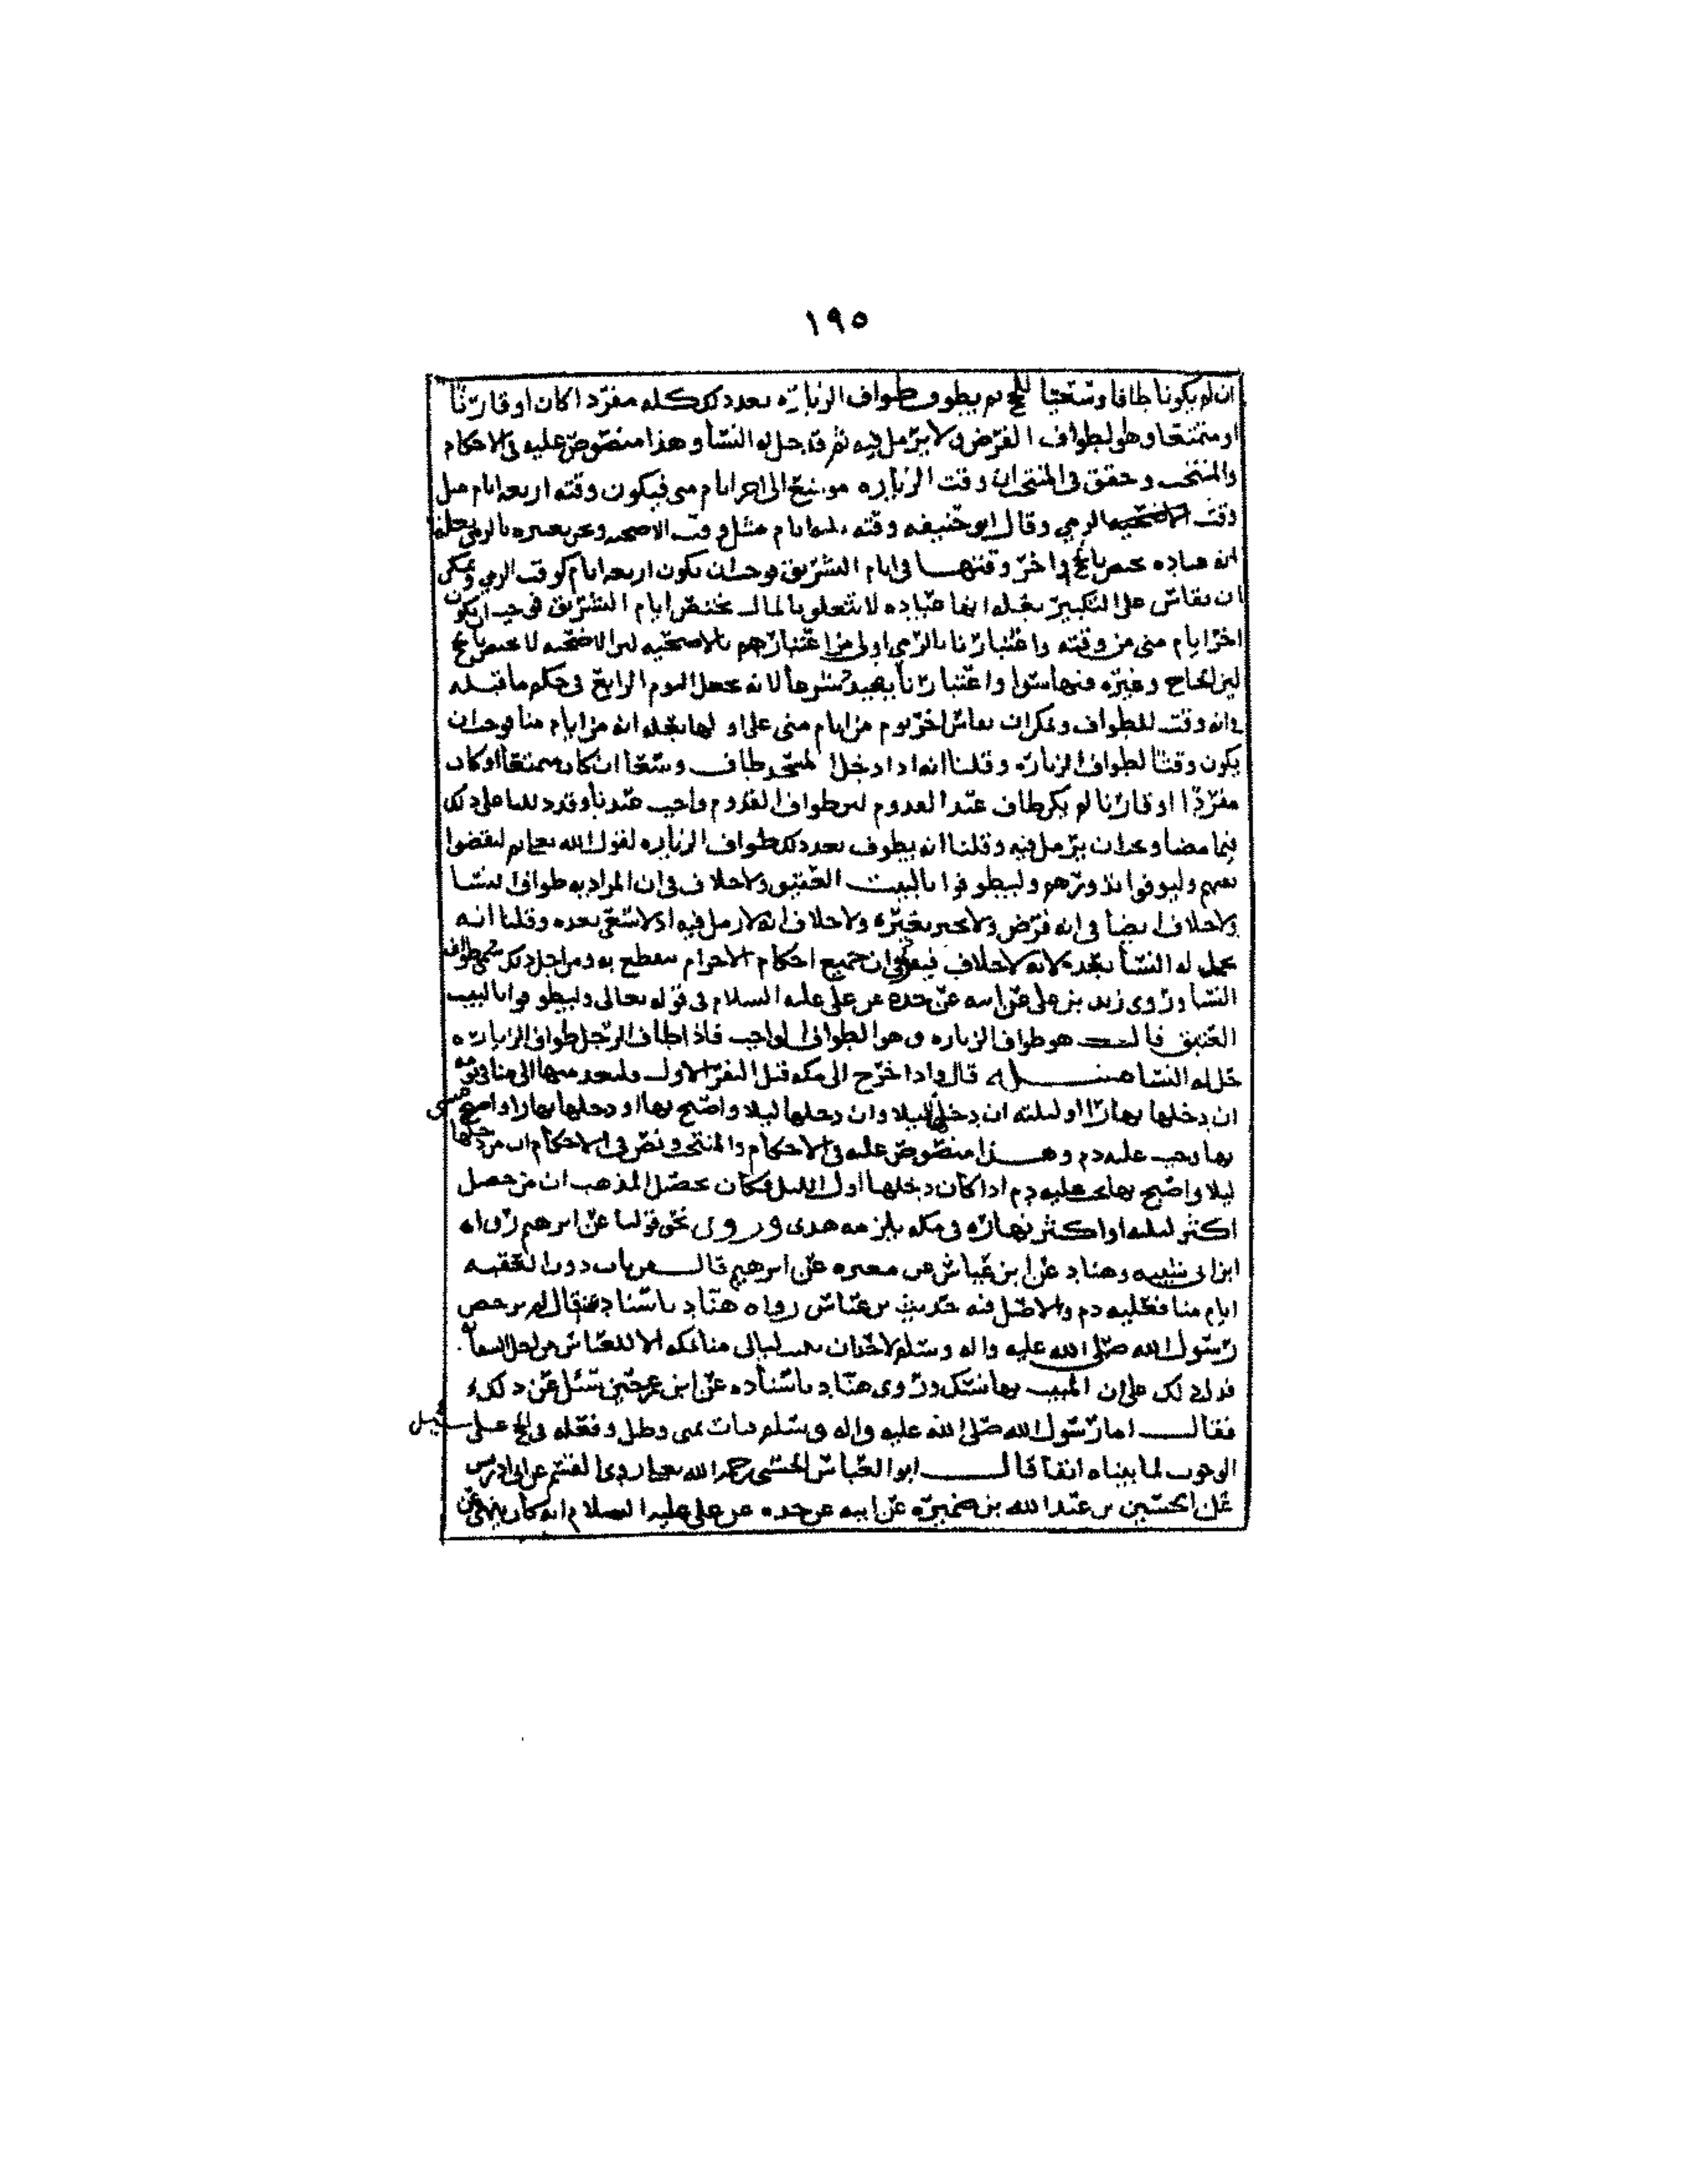 ١٩٥
ان لم يكونا طافا وسعيا للحج ثم يطوف طواف الزيارة بعد ذلك كله مفردا كان او قارنا
او متمتعا وهو طواف الفرض ولا يرمل فيه ثم قد حل له النسا وهذا منصوص عليه في الاحكام
والمنتخب وحقق في المنتخب ان وقت الزياره موسع الى اخر ايام منى فيكون وقته اربعه ايام مثل
وقت الرمي وقال ابو حنيفه وقته ثلثه ايام مثل وقت الاضحيه ونحن نعتبره بالرمي بعلة
انه عباده تختص بالحج واخر وقتها في ايام التشريق فوجب ان يكون اربعه ايام كوقت الرمي ويمكن
ان نقاس على التكبير بعلة انها عباده لا تتعلق بالمال تختص ايام التشريق فيجب ان يكون
اخر ايام منى من وقته واعتبارنا بالرمي اولى من اعتبارهم بالاضحيه لان الاضحيه لا تختص بالحج
لان الحاج وغيره فيها سوا واعتبارنا يفيد شرعا لانه يجعل اليوم الرابع في حكم ما قبله
في انه وقت للطواف ويمكن ان نقاس اخر يوم من ايام منى على اولها بعلة انه من ايام منا فوجب ان
يكون وقتا لطواف الزيارة وقلنا انه اذا دخل المسجد طاف وسعا ان كان متمتعا او كان
مفردا او قارنا لم يكن طاف عند القدوم لان طواف القدوم واجب عندنا وقد دللنا على ذلك
فيما مضا ويجب ان يرمل فيه وقلنا انه يطوف بعد ذلك طواف الزياره لقول الله تعالى ثم ليقضوا
تفثهم وليوفوا نذورهم وليطوفوا بالبيت العتيق ولا خلاف في ان المراد به طواف النسا
ولا خلاف ايضا في انه فرض ولا يجبر بغيره ولا خلاف انه لا رمل فيه اذ لا سعي بعده وقلنا انه
يحل له النسا بعده لانه لا خلاف فيه وفي ان جميع احكام الاحرام تنقطع به ومن اجل ذلك سمي طواف
النسا وروى زيد بن علي عن ابيه عن جده عن علي عليه السلام في قوله تعالى وليطوفوا بالبيت
العتيق قال هو طواف الزياره وهو الطواف الواجب فاذا طاف الرجل طواف الزياره
حل له النسا مسئله قال واذا خرج الى مكه قبل النفر الاول فليعد منها الى منا في يومه
ان دخلها نهارا او ليلته ان دخلها ليلا وان دخلها ليلا واصبح بها او دخلها نهارا وامسى
بها وجب عليه دم وهذا منصوص عليه في الاحكام والمنتخب ونص في الاحكام ان من دخلها
ليلا واصبح بها يجب عليه دم اذا كان دخلها اول الليل فكان تحصيل المذهب ان من حصل
اكثر ليله او اكثر نهاره في مكه يلزمه هدى وروى نحو قولنا عن ابرهيم رواه
ابن ابي شيبه وهناد عن ابن عياش عن مغيره عن ابرهيم قال من بات دون العقبه
ايام منا فعليه دم والاصل فيه حديث بن عباس رواه هناد باسناده قال لم يرخص
رسول الله صلى الله عليه واله وسلم لاحد ان يبيت ليالي منا بمكه الا للعباس من اجل السقايه
فدل ذلك على ان المبيت بها نسك وروى هناد باسناده عن ابن عمر حين سئل عن ذلك
فقال اما رسول الله صلى الله عليه واله وسلم فبات بمنى وظل وفعله في الحج على سبيل
الوجوب لما بيناه انفا قال ابو العباس الحسني رحمه الله تعالى روى القسم عن ابن ابي اويس
عن الحسين بن عبد الله بن ضميرة عن ابيه عن جده عن علي عليه السلام انه كان ينهى عن